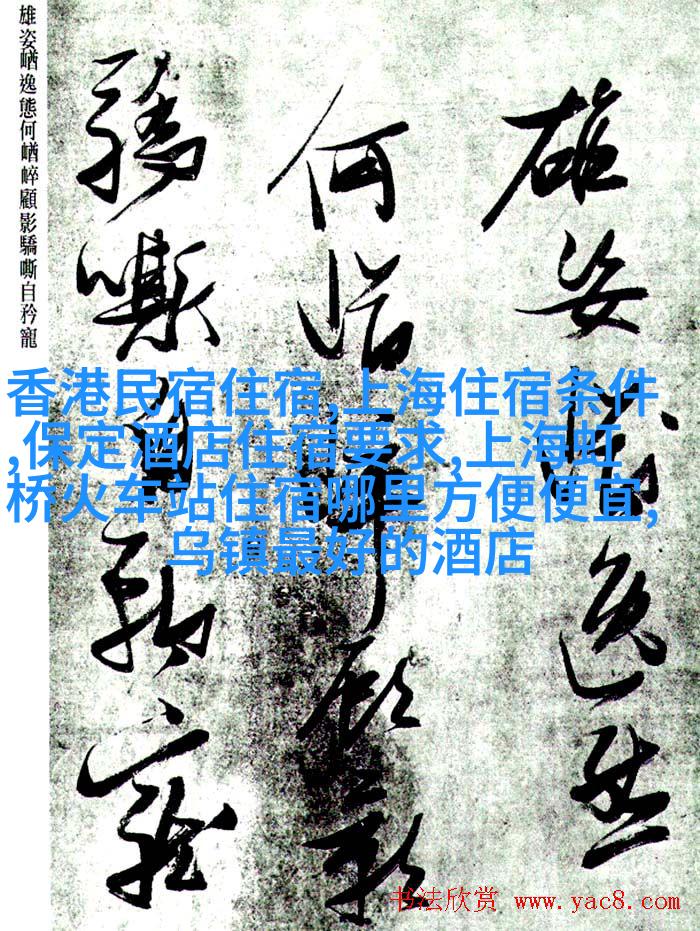 雄姿崷逸態何崷崪顧影驕嘶自矜寵
雄姿崷逸態
何崷崪顧影
驕嘶自矜寵
香港民宿住宿,上海住宿条件
,保定酒店住宿要求,上海虹
桥火车站住宿哪里方便便宜,
乌镇最好的酒店
书法欣赏 www.yac8.com